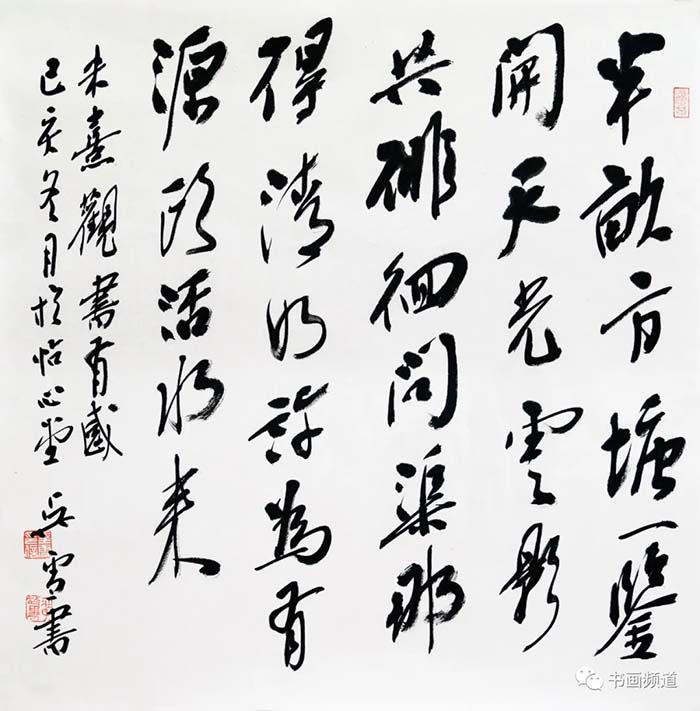 半畝方塘一鑒
開天光雲影
共徘徊問渠那
得清如許為有
源頭活水來
朱熹觀書有感
己亥冬月於怡心堂 吳雪書
书画频道